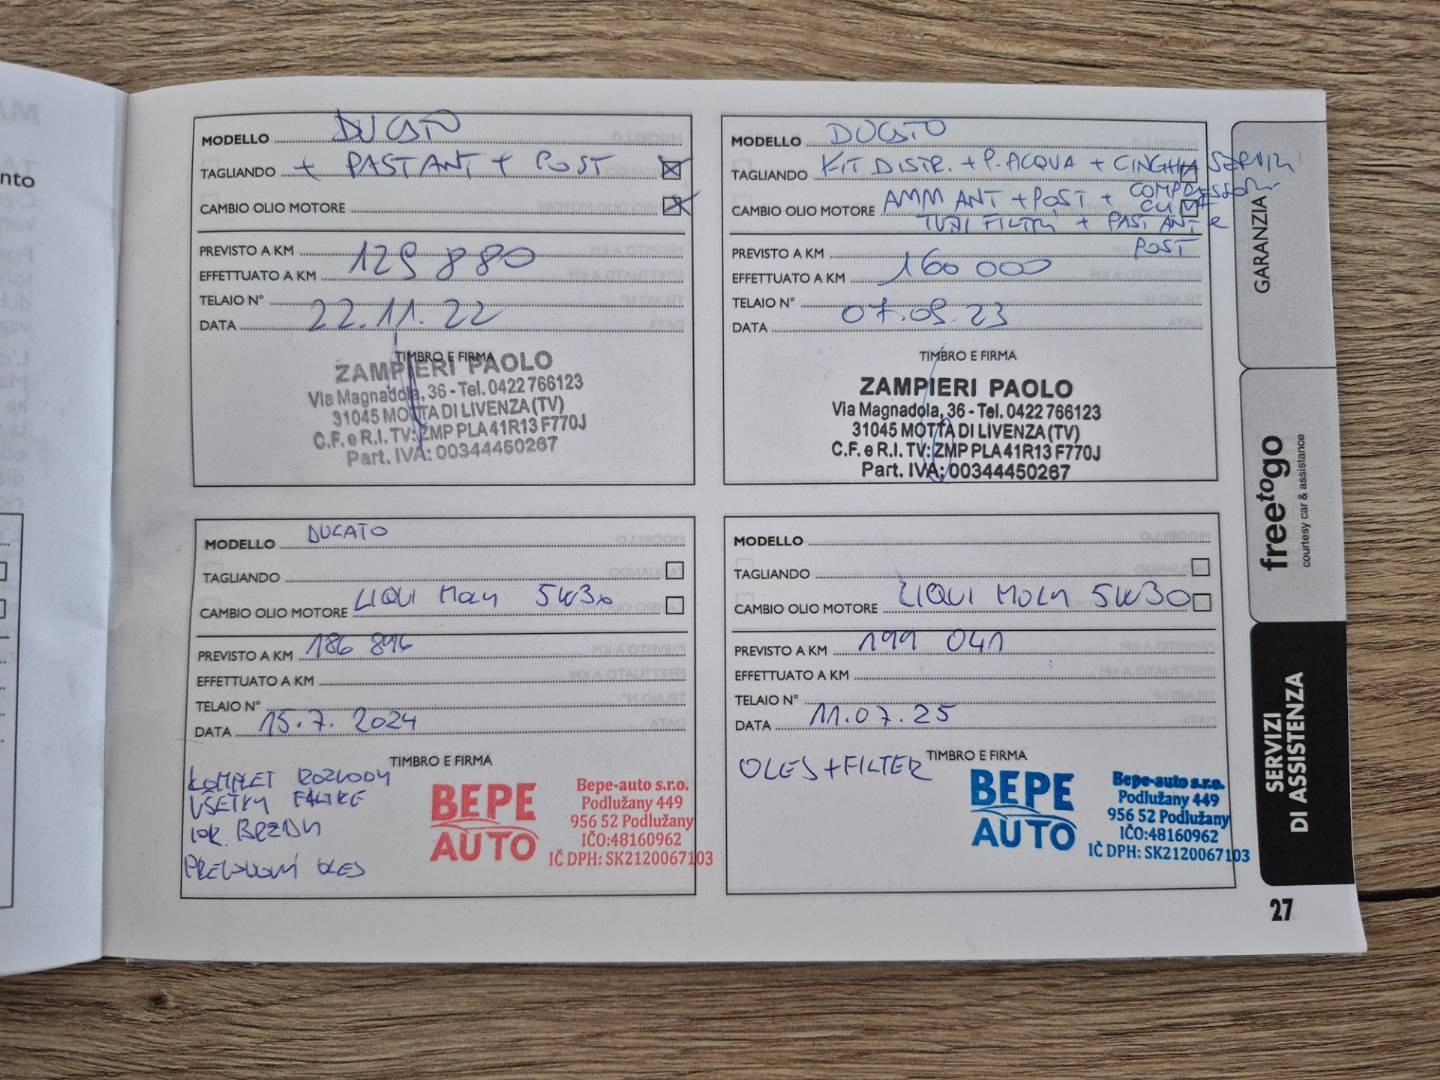 nto
MODELLO DUCATO
TAGLIANDO + PAST ANT + POST
CAMBIO OLIO MOTORE
PREVISTO A KM
EFFETTUATO A KM 129 880
TELAIO N°
DATA 22.11.22
TIMBRO E FIRMA
ZAMPIERI PAOLO
Via Magnadola, 36 - Tel. 0422 766123
31045 MOTTA DI LIVENZA (TV)
C.F. e R.I. TV: ZMP PLA 41R13 F770J
Part. IVA: 00344450267
MODELLO DUCATO
TAGLIANDO KIT DISTR. + P. ACQUA + CINGHIA SERVIZI
COMPRESSORE
CAMBIO OLIO MOTORE AMM ANT + POST +
FILTRI + PAST ANT e
POST
PREVISTO A KM
EFFETTUATO A KM 160 000
TELAIO N°
DATA 07.09.23
TIMBRO E FIRMA
ZAMPIERI PAOLO
Via Magnadola, 36 - Tel. 0422 766123
31045 MOTTA DI LIVENZA (TV)
C.F. e R.I. TV: ZMP PLA 41R13 F770J
Part. IVA: 00344450267
MODELLO DUCATO
TAGLIANDO
CAMBIO OLIO MOTORE LIQUI MOLY 5W30
PREVISTO A KM 186 896
EFFETTUATO A KM
TELAIO N°
DATA 15.7.2024
TIMBRO E FIRMA
KOMPLET ROZVODY
VŠETKY FILTRE
BRZDY
PREVODOVÝ OLEJ
BEPE
AUTO
Bepe-auto s.r.o.
Podlužany 449
956 52 Podlužany
IČO:48160962
IČ DPH: SK2120067103
MODELLO
TAGLIANDO
CAMBIO OLIO MOTORE LIQUI MOLY 5W30
PREVISTO A KM 199 041
EFFETTUATO A KM
TELAIO N°
DATA 11.07.25
TIMBRO E FIRMA
OLEJ + FILTER
BEPE
AUTO
Bepe-auto s.r.o.
Podlužany 449
956 52 Podlužany
IČO:48160962
IČ DPH: SK2120067103
GARANZIA
freetogo
courtesy car & assistance
SERVIZI
DI ASSISTENZA
27